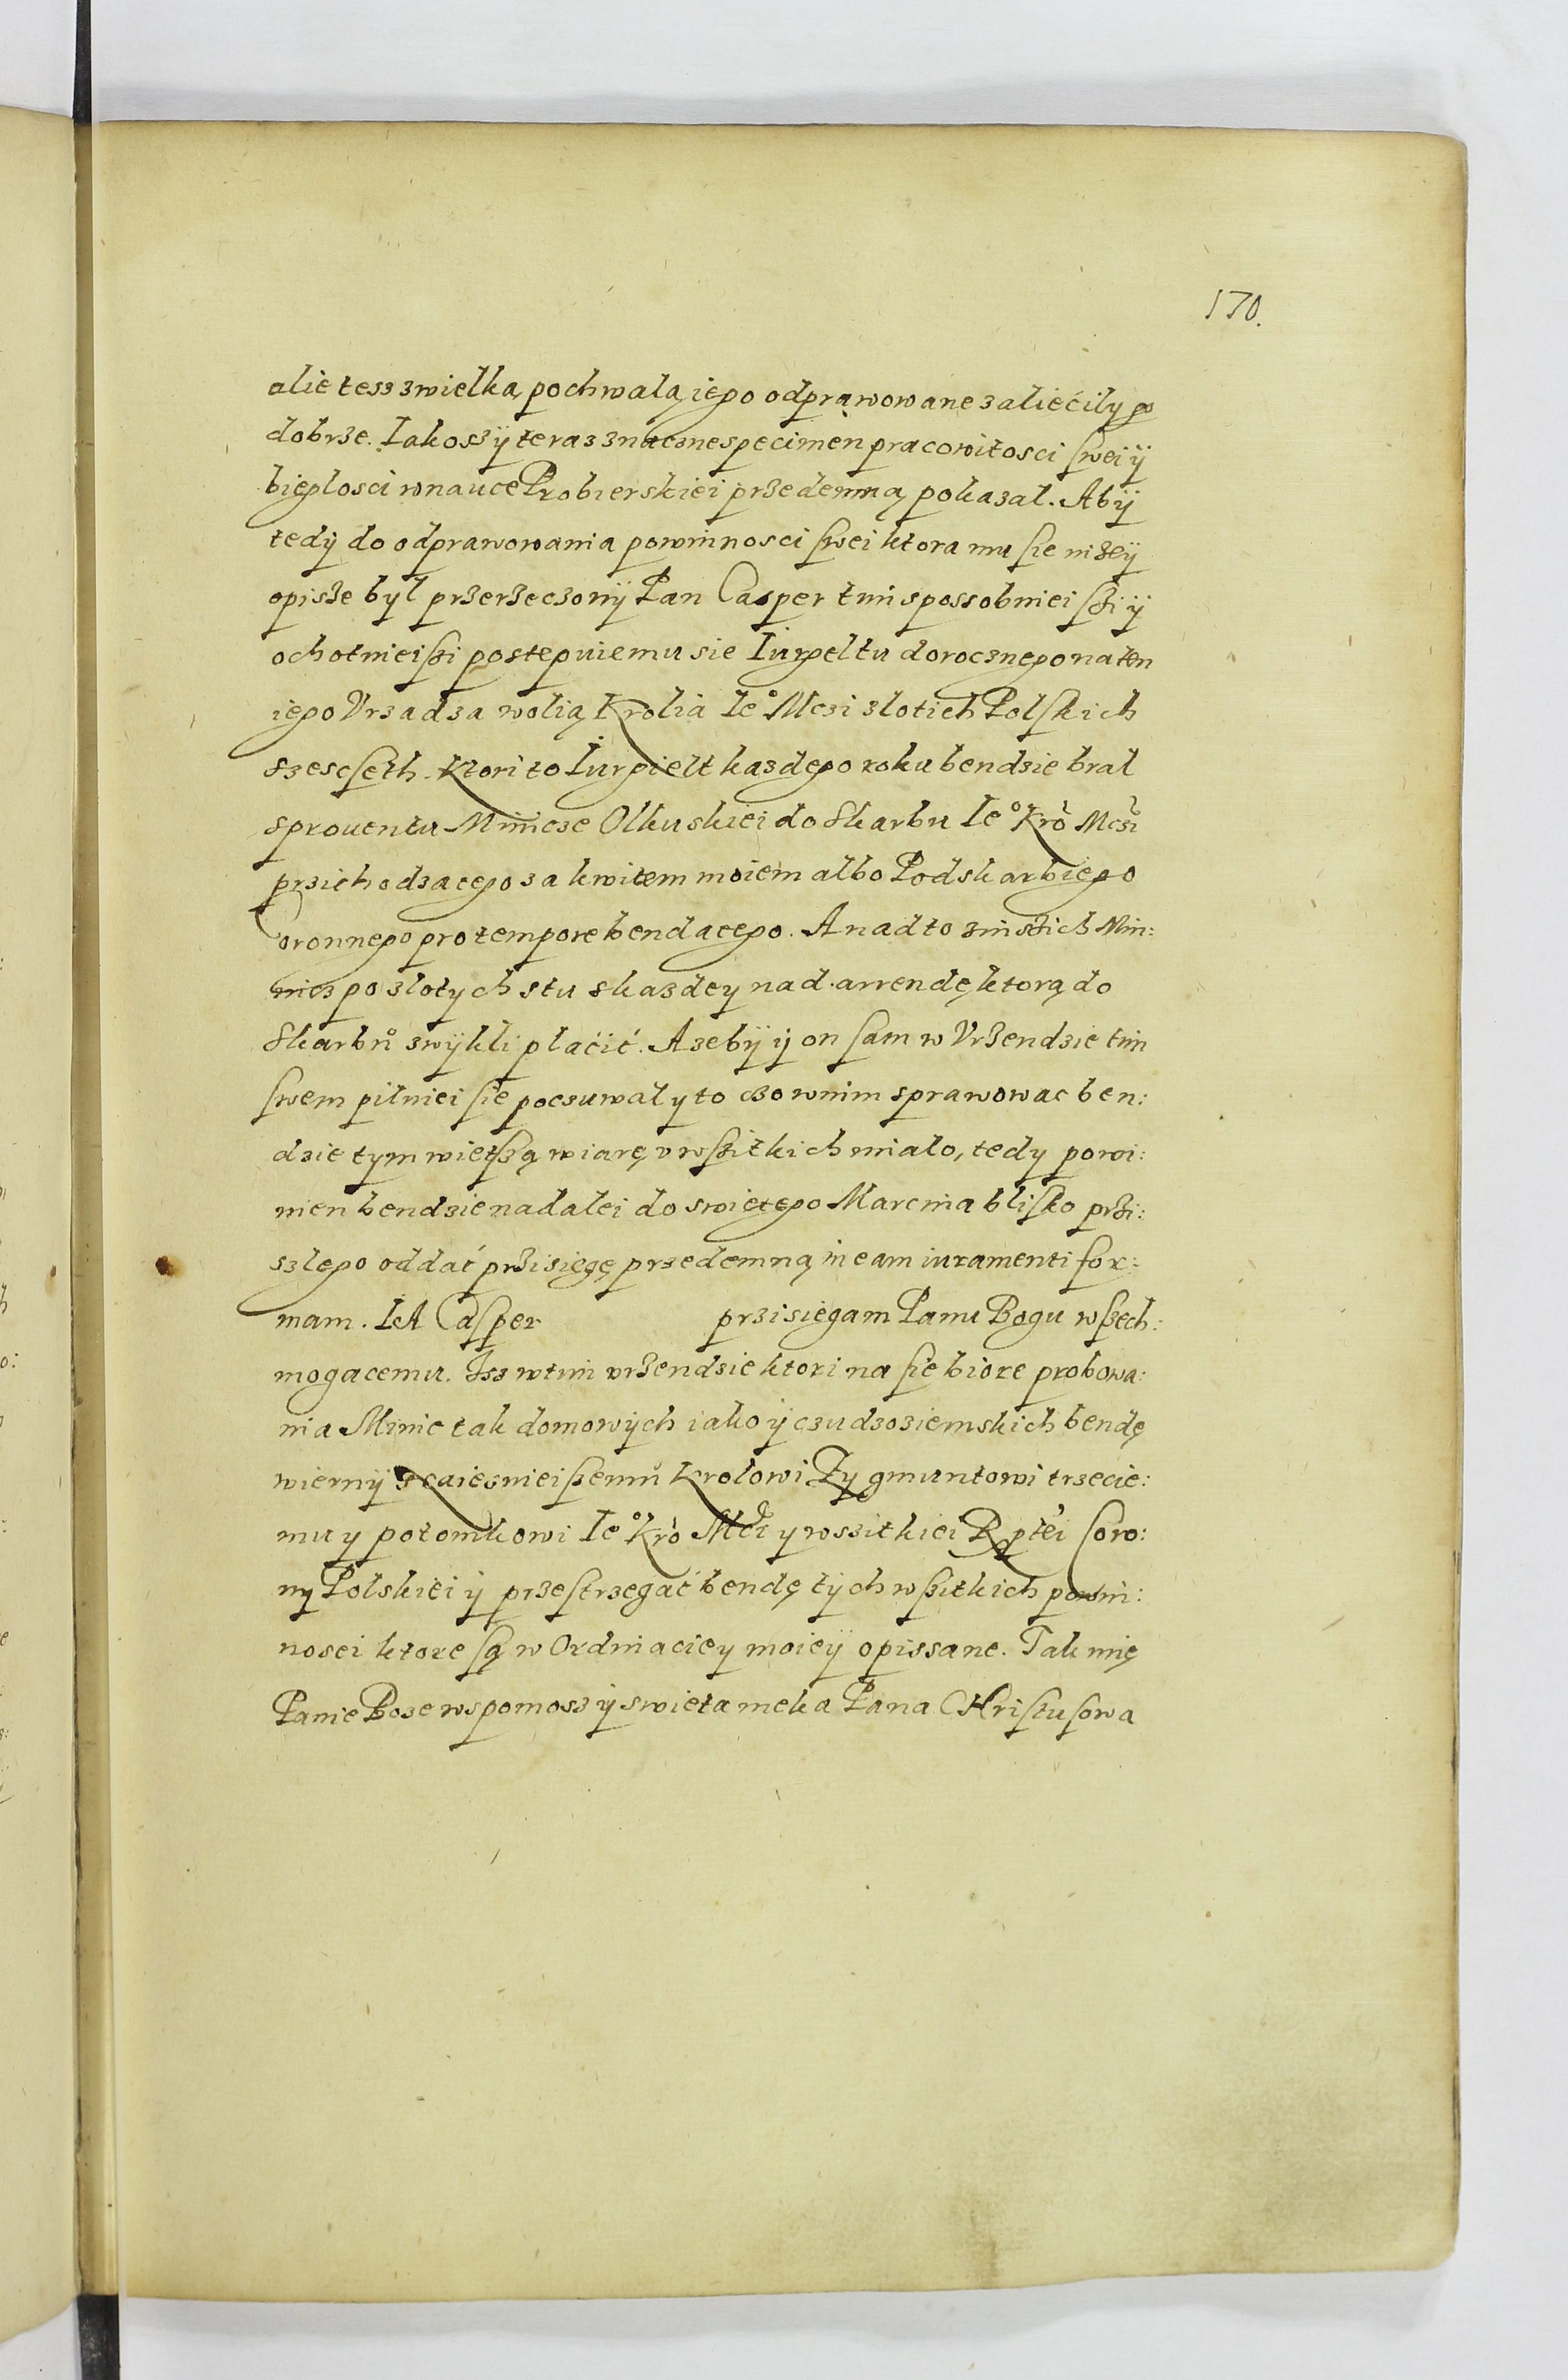 170.
alie tesz zwielką pochwalą iego odprawowane zaliećily go
dobrze. Iakosz ÿ teraz znaczne specimen pracowitosci swei ÿ
bięglosci wnauce Probierskiei przedemną pokazal. Abÿ
tedÿ do odprawowania powinnosci swei ktora mu sie niżeÿ
opisze byl przerzeczonÿ Pan Casper tim spossobnieiszi ÿ
ochotnieiszi postepuiemu sie Iurgeltu dorocznego na ten
iego Vrzad za wolią Krolia Ie° Mczi zlotich Polskich
szescseth. Ktori to Iurgielt kazdego roku bendzie bral
sprouentu Minicze Olkuskiei do Skarbu Ie° Kro Mczi
przichodzacego za kwitem moiem albo Podskarbiego
Coronnego pro tempore bendacego. A nad to zinszich Min:
nicz po zlotych stu skazdey nad arrendę ktorą do
Skarbu zwÿkli plaćić. A zebÿ ÿ on sam w Vrzendzie tim
swem pilniei sie poczuwal y to czo wnim sprawowac ben:
dzie tym wietszą wiarę v wszitkich mialo, tedy powi:
nien bendzie nadalei do swiętego Marcina blisko przi:
szlego oddać przisięgę przedemną in eam iuramenti for:
mam. IA Casper przisiegam Panu Bogu wszech:
mogacemu. Isz wtim vrzendzie ktori na sie biore probowa:
nia Minic tak domowÿch iako ÿ czudzoziemskich bendę
wiernÿ Naiesnieiszemu Krolowi Zygmuntowi trzecie:
mu y potomkowi Ie° Kro Mci y wszitkiei Rptei Coro:
ny Polskiei ÿ przestrzegać bendę tÿch wszitkich powin:
nosci ktore są w Ordinaciey moieÿ opissane. Tak mię
Panie Boze wspomosz ÿ swieta meka Pana CHristusowa